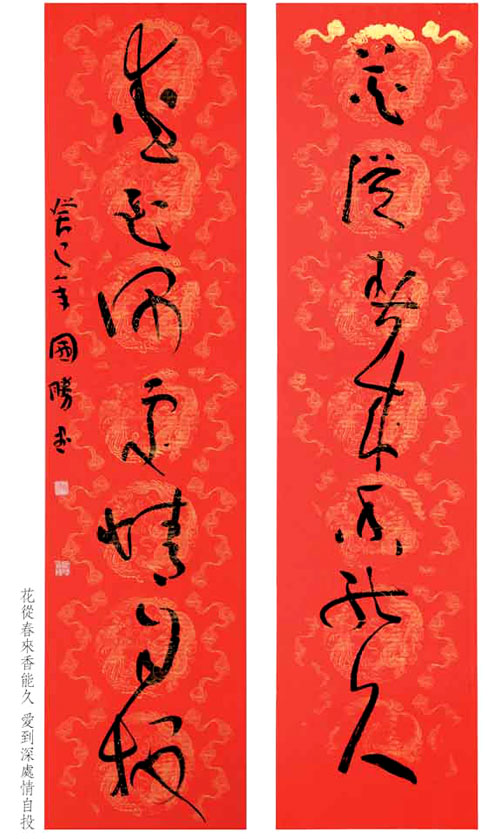 花從春來香能久
愛到深處情自投
癸巳年國勝書
花從春來香能久 愛到深處情自投